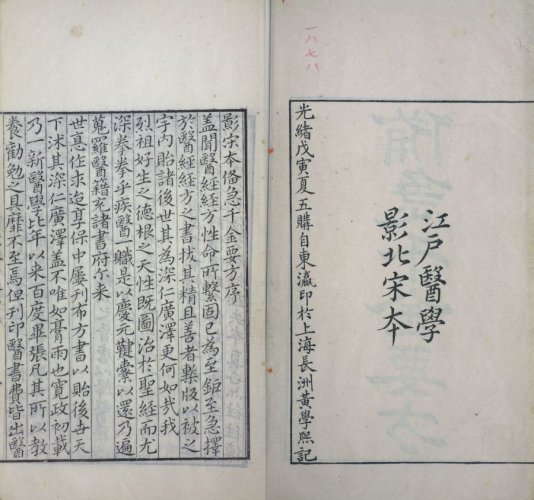 一八七八
江戶醫學
影北宋本
光緒戊寅夏五購自東瀛印於上海長洲黃學熙記
影宋本備急千金要方序
蓋聞醫經經方性命所繫固已為至鉅至急擇
於醫經經方之書拔其精且善者槧版以被之
宇內貽諸後世其為深仁廣澤更何如哉我
烈祖好生之德根之天性既圖治於聖經而尤
深眷拳乎疾醫一職是以慶元鞬櫜以還乃遍
蒐羅醫籍充諸書府尒來
世悉作求迨享保中屢刊布方書以貽後世天
下沐其深仁廣澤蓋不唯如膏雨也寬政初載
乃一新醫學比年以來百度畢張凡其所以教
養勸勉之具靡不至焉但刊印醫書費皆出醫